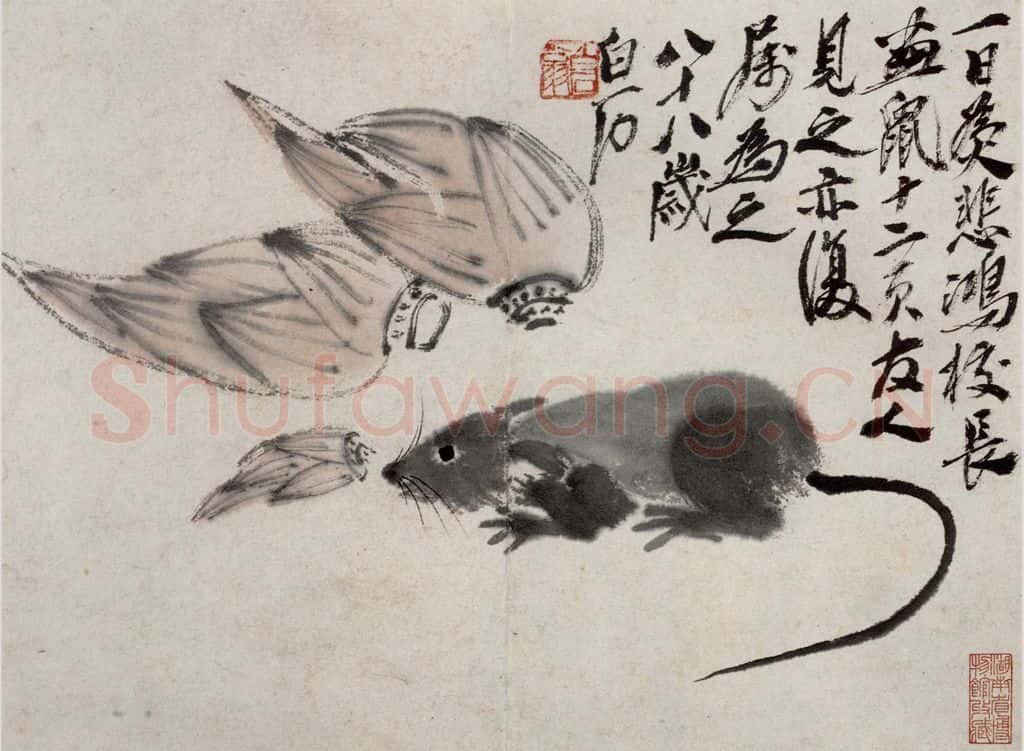 一日為悲鴻校長
畫鼠十二頁友人
見之亦復
屬為之
八十八歲
白石
湖南省博
物館收藏
Shufawang.CN